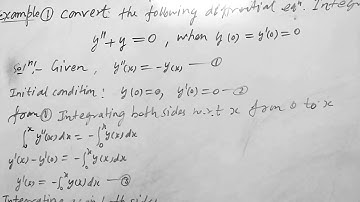 Example ① convert the following differential eqⁿ. Integ
y'' + y = 0 , when y(0) = y'(0) = 0
Solⁿ:- Given, y''(x) = -y(x) — ①
Initial condition: y(0)=0, y'(0)=0 — ②
from ① Integrating both sides w.r.t x from 0 to x
∫₀ˣ y''(x)dx = -∫₀ˣ y(x)dx
y'(x) - y'(0) = -∫₀ˣ y(x)dx
y'(x) = -∫₀ˣ y(x)dx — ③
Integrating again both sides